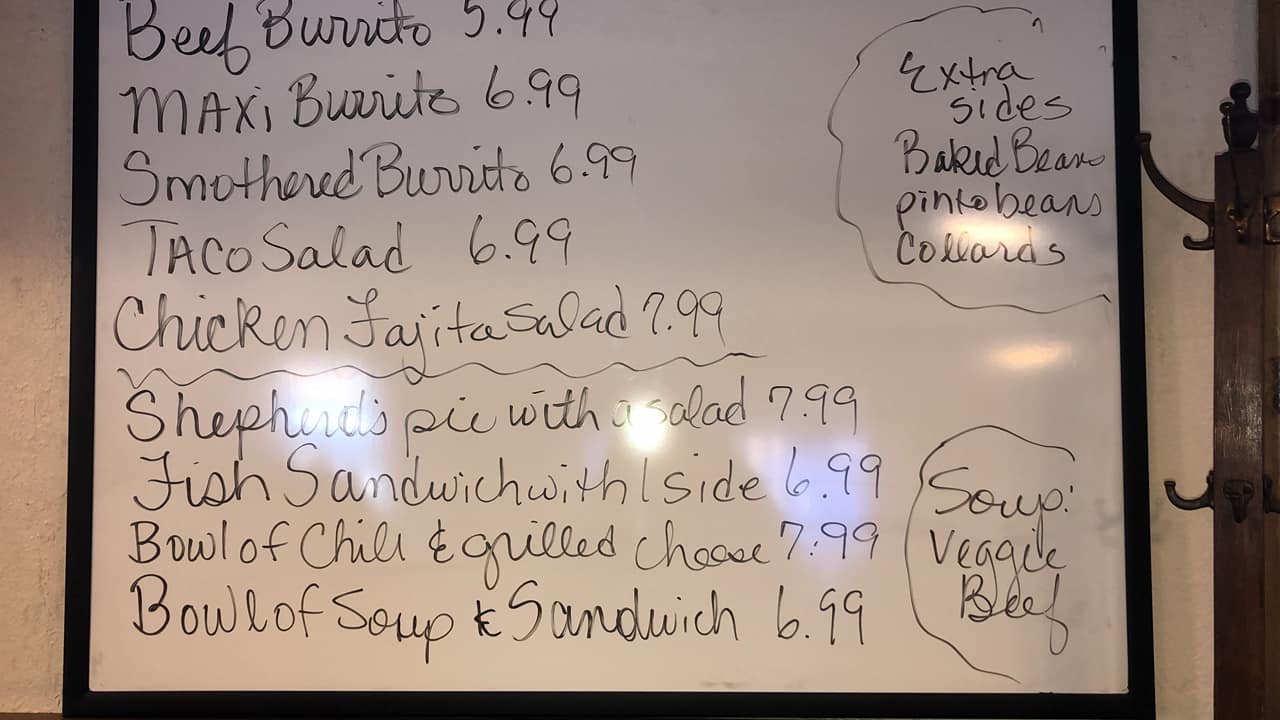 Beef Burrito 5.99
MAXi Burrito 6.99
Smothered Burrito 6.99
TACO Salad 6.99
Chicken Fajita Salad 7.99
Shepherd's pie with a salad 7.99
Fish Sandwich with 1 side 6.99
Bowl of Chili & grilled cheese 7.99
Bowl of Soup & Sandwich 6.99
Extra
sides
Baked Beans
pinto beans
Collards
Soup:
Veggie
Beef